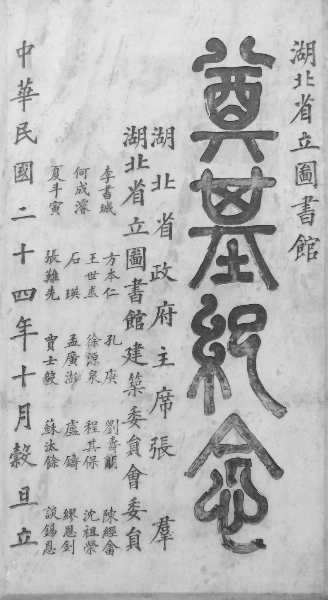 湖北省立圖書館
奠基紀念
湖北省政府主席張羣
湖北省立圖書館建築委員會委員
李書城 方本仁 孔庚 劉壽朋 陳經畬
何成濬 王世杰 徐源泉 程其保 沈祖榮
石瑛 孟廣澎 盧鑄 繆恩釗
夏斗寅 張難先 賈士毅 蘇汰餘 談錫恩
中華民國二十四年十月穀旦立